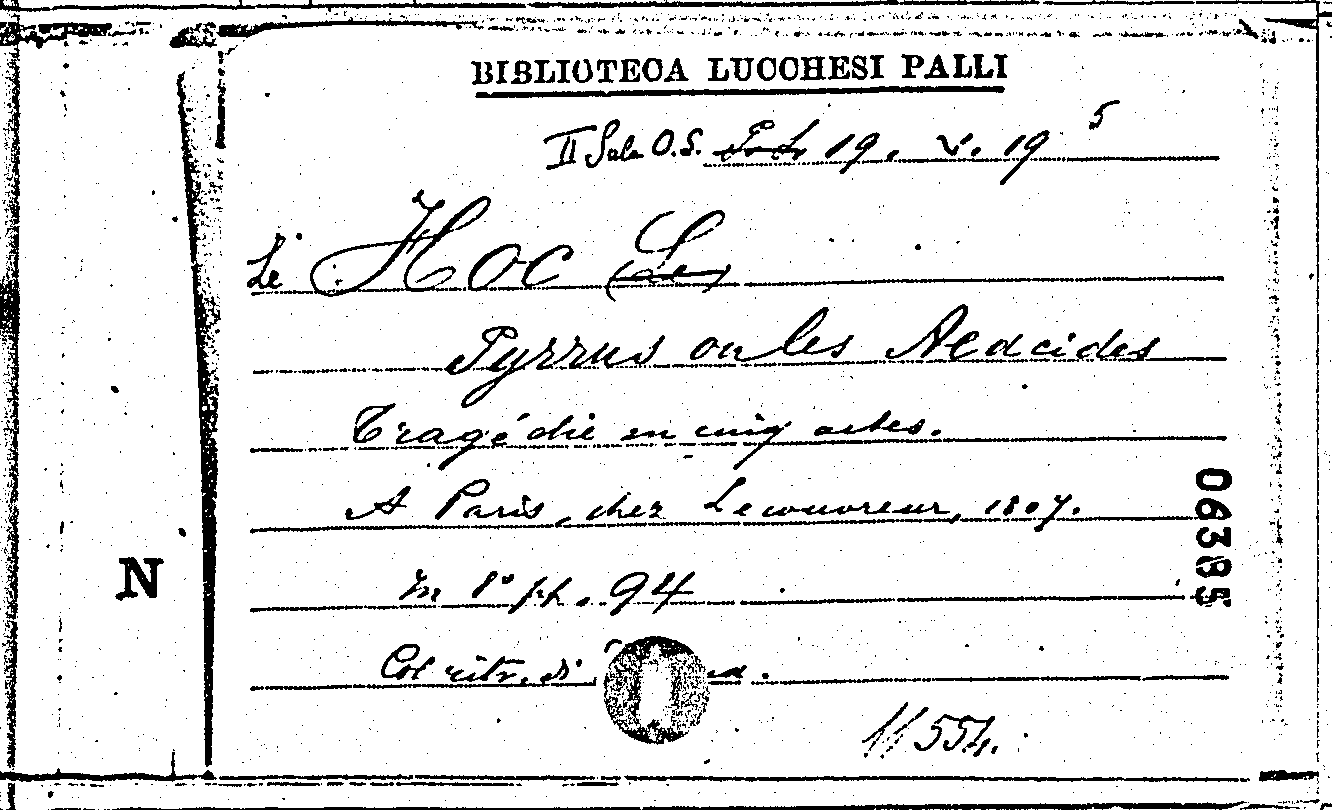 BIBLIOTECA LUCCHESI PALLI
II Sala O.S. 19. V. 19 5
Le Hoc (Le)
Pyrrus ou les Aeacides
Tragédie en cinq actes.
A Paris, chez Lecouvreur, 1807.
In 8° pp. 94
Col ritr. di
11554.
N
06385